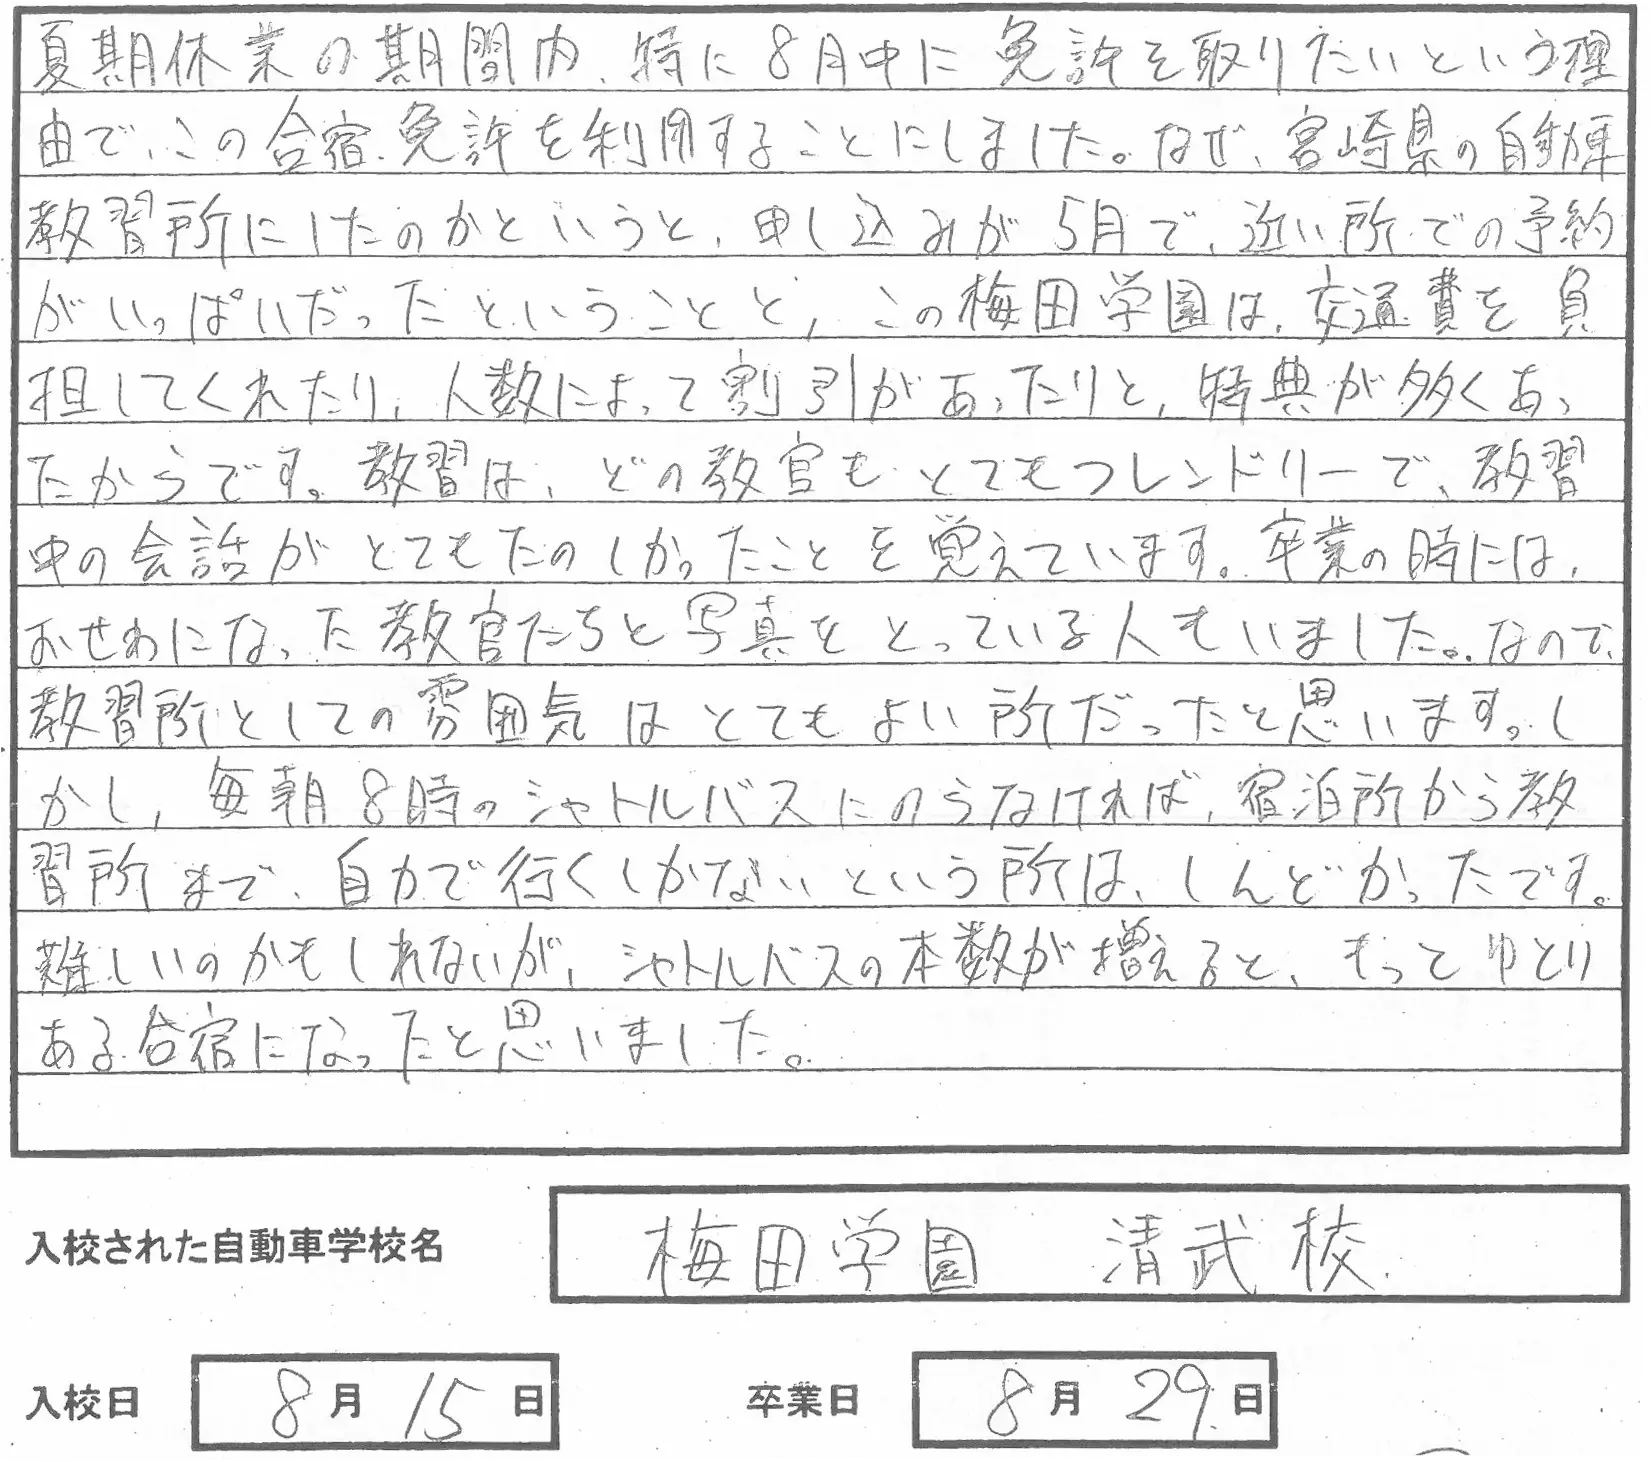 夏期休業の期間内、特に8月中に免許を取りたいという理
由で、この合宿免許を利用することにしました。なぜ、宮崎県の自動車
教習所にしたのかというと、申し込みが5月で、近い所での予約
がいっぱいだったということと、この梅田学園は、交通費を負
担してくれたり、人数によって割引があったりと、特典が多くあっ
たからです。教習は、どの教官もとてもフレンドリーで、教習
中の会話がとてもたのしかったことを覚えています。卒業の時には、
おせわになった教官たちと写真をとっている人もいました。なので、
教習所としての雰囲気はとてもよい所だったと思います。し
かし、毎朝8時のシャトルバスにのらなければ、宿泊所から教
習所まで、自力で行くしかないという所は、しんどかったです。
難しいのかもしれないが、シャトルバスの本数が増えると、もっとゆとり
ある合宿になったと思いました。
入校された自動車学校名 梅田学園 清武校
入校日 8月15日 卒業日 8月29日